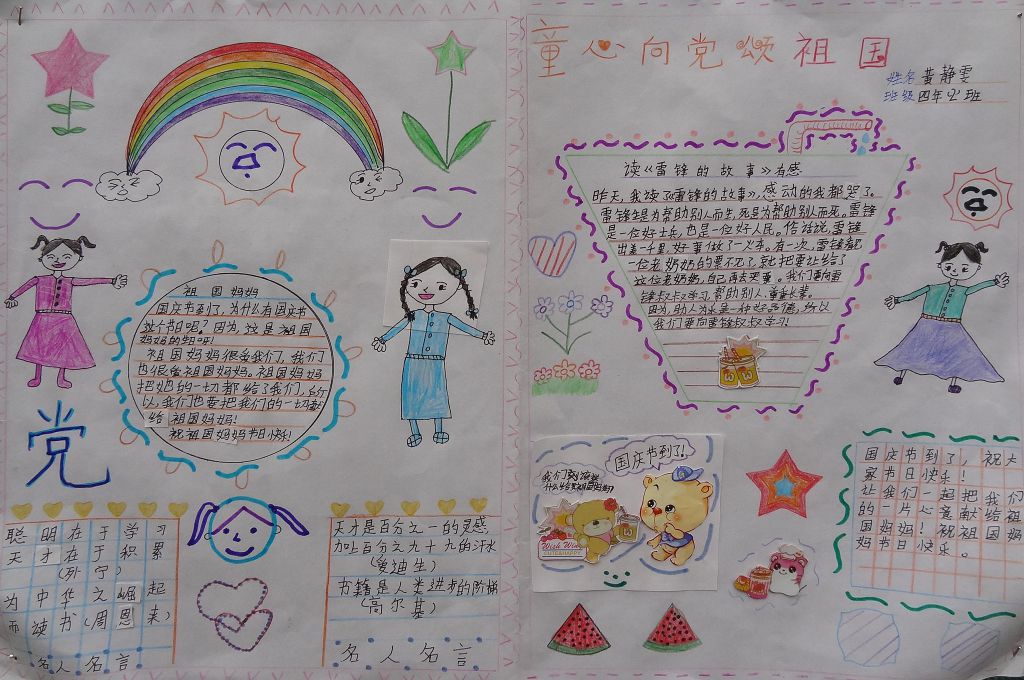 童心向党颂祖国
姓名黄静雯
班级四年2班
祖国妈妈
国庆节到了,为什么有国庆节
这个节日呢?因为,这是祖国
妈妈的
祖国妈妈很爱我们,我们
也很爱祖国妈妈。祖国妈妈
把她的一切都给了我们,所
以,我们也要把我们的一切献
给祖国妈妈!
祝祖国妈妈节日快乐!
党
聪明在于学习
天才在于积累
(列宁)
为中华之崛起
而读书(周恩来)
名人名言
天才是百分之一的灵感
加上百分之九十九的汗水
(爱迪生)
书籍是人类进步的阶梯
(高尔基)
名人名言
读《雷锋的故事》有感
昨天,我读了《雷锋的故事》,感动的我都哭了。
雷锋生是为帮助别人而生,死是为帮助别人而死。雷锋
是一位好士兵,也是一位好人民。俗话说,雷锋
出差一千里,好事做了一火车。有一次,雷锋看见
一位老奶奶的票不见了,就把票让给了
这位老奶奶,自己再去买票。我们要向雷
锋叔叔学习,帮助别人,尊重长辈。
因为,助人为乐是一种好品德,所以
我们要向雷锋叔叔学习!
国庆节到了!
我们
什么
Wish Wing
CUTE&HAPPY
国庆节到了,祝大
家节日快乐!
让我们一起把我们
的一片心意献给祖
国妈妈!祝祖国妈
妈节日快乐。